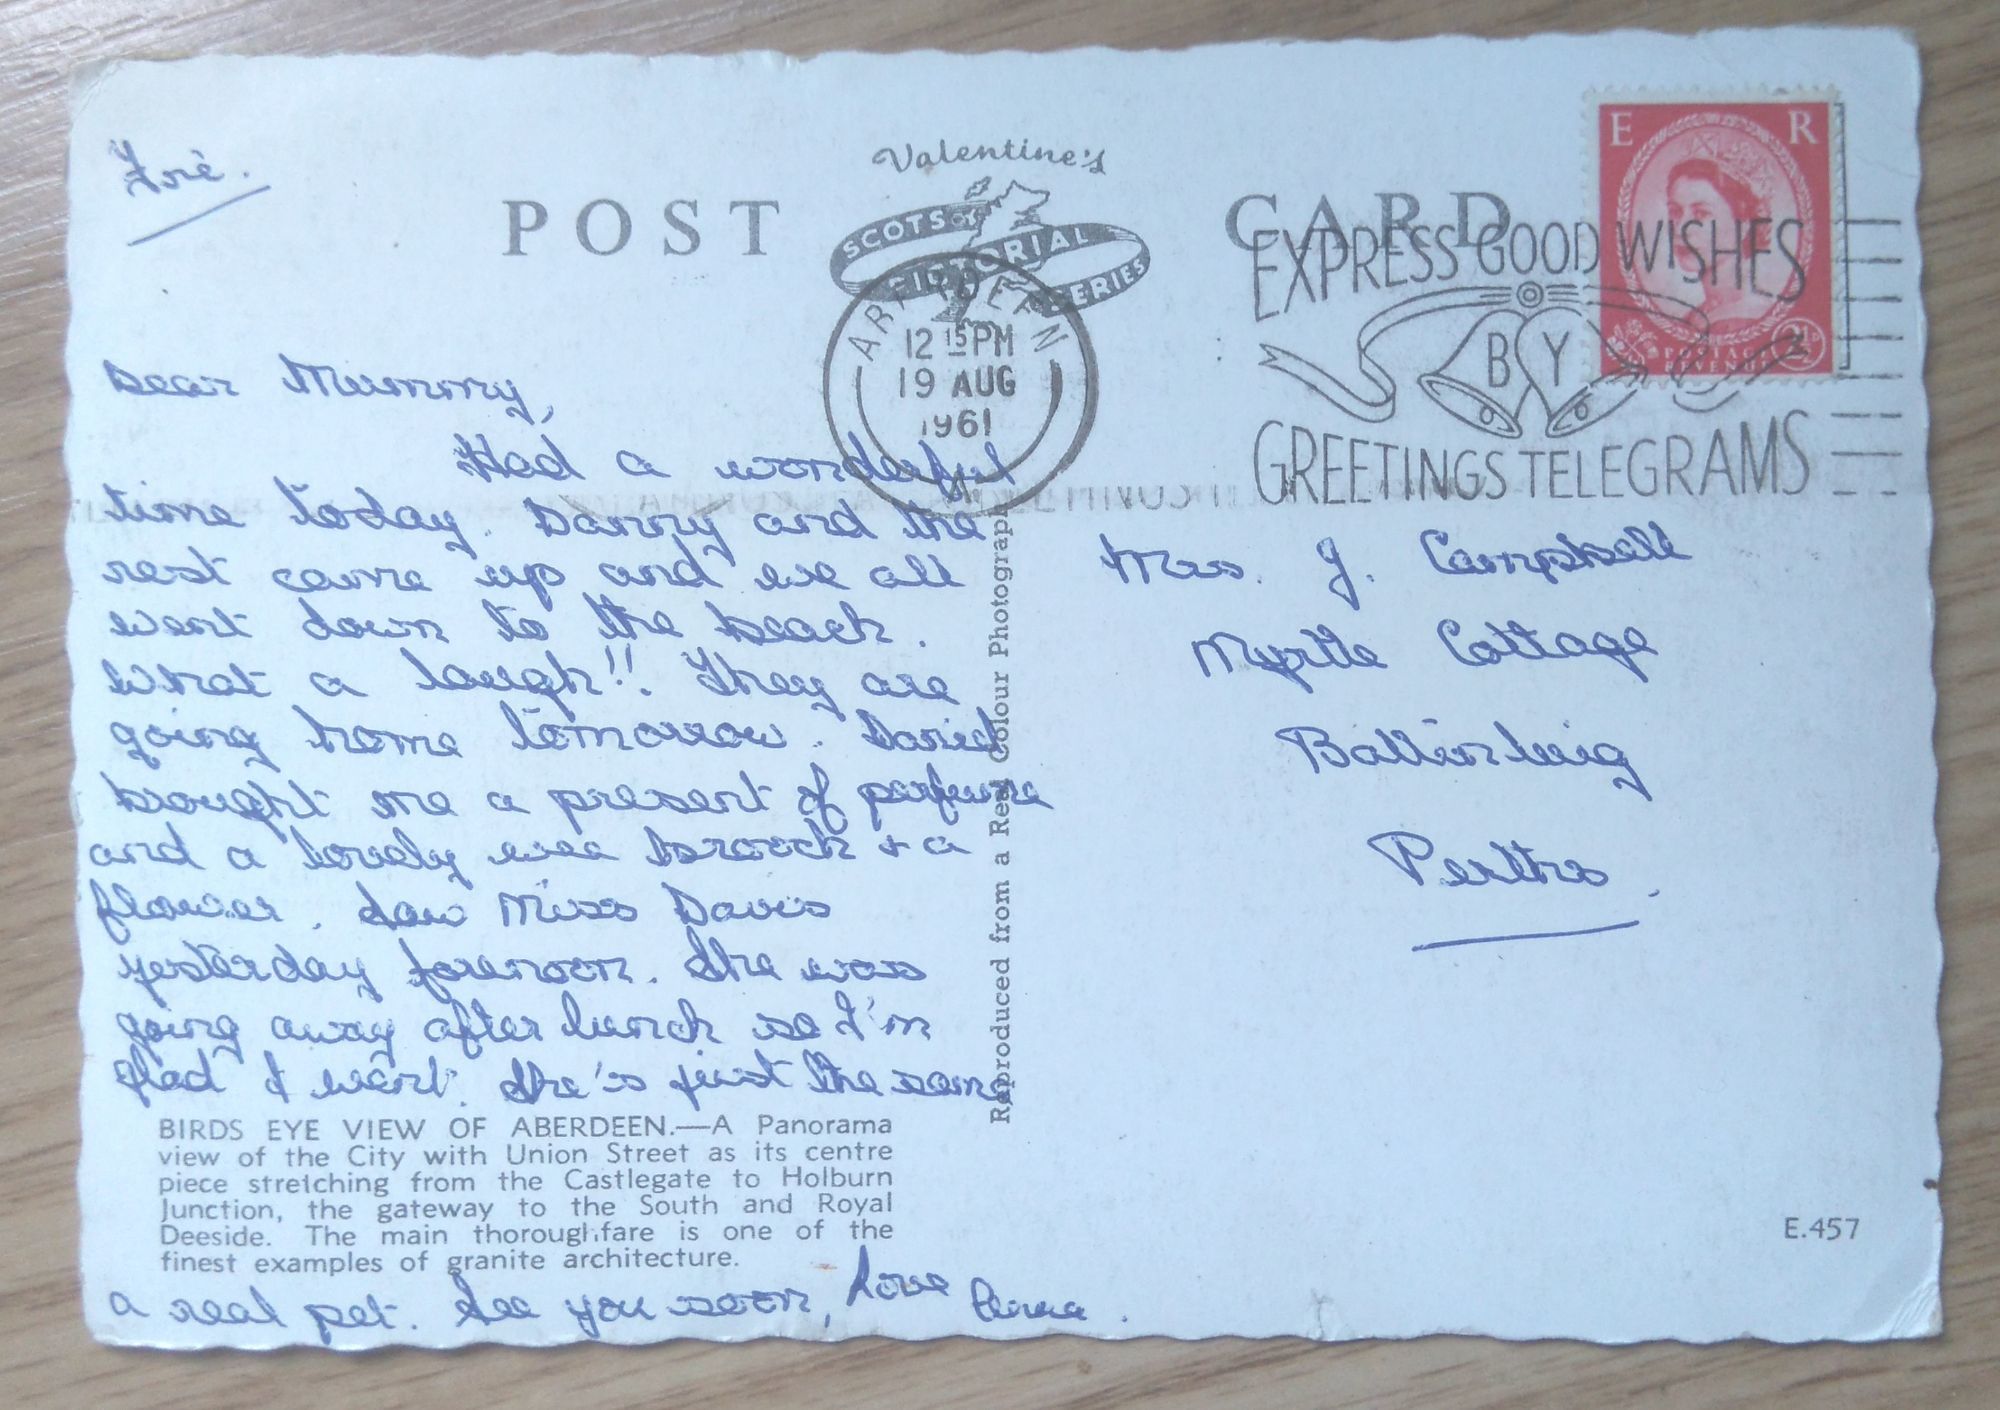 Fri.
Valentine's
POST CARD
SCOTS
PICTORIAL
SERIES
ABERDEEN
12 15 PM
19 AUG
1961
EXPRESS GOOD WISHES
BY
GREETINGS TELEGRAMS
E R
POSTAGE
REVENUE
2½D
Dear Mummy,
Had a wonderful
time today. Danny and the
rest came up and we all
went down to the beach.
What a laugh!! They are
going home tomorrow. David
brought me a present of perfume
and a lovely wee brooch + a
flower. Saw Miss Davis
yesterday forenoon. She was
going away after lunch so I'm
glad I went. She's just the same,
BIRDS EYE VIEW OF ABERDEEN.—A Panorama
view of the City with Union Street as its centre
piece stretching from the Castlegate to Holburn
Junction, the gateway to the South and Royal
Deeside. The main thoroughfare is one of the
finest examples of granite architecture.
a real pet. See you soon, Love
Reproduced from a Real Colour Photograph
Mrs. J. Campbell
Myrtle Cottage
Ballinluig
Perths.
E.457